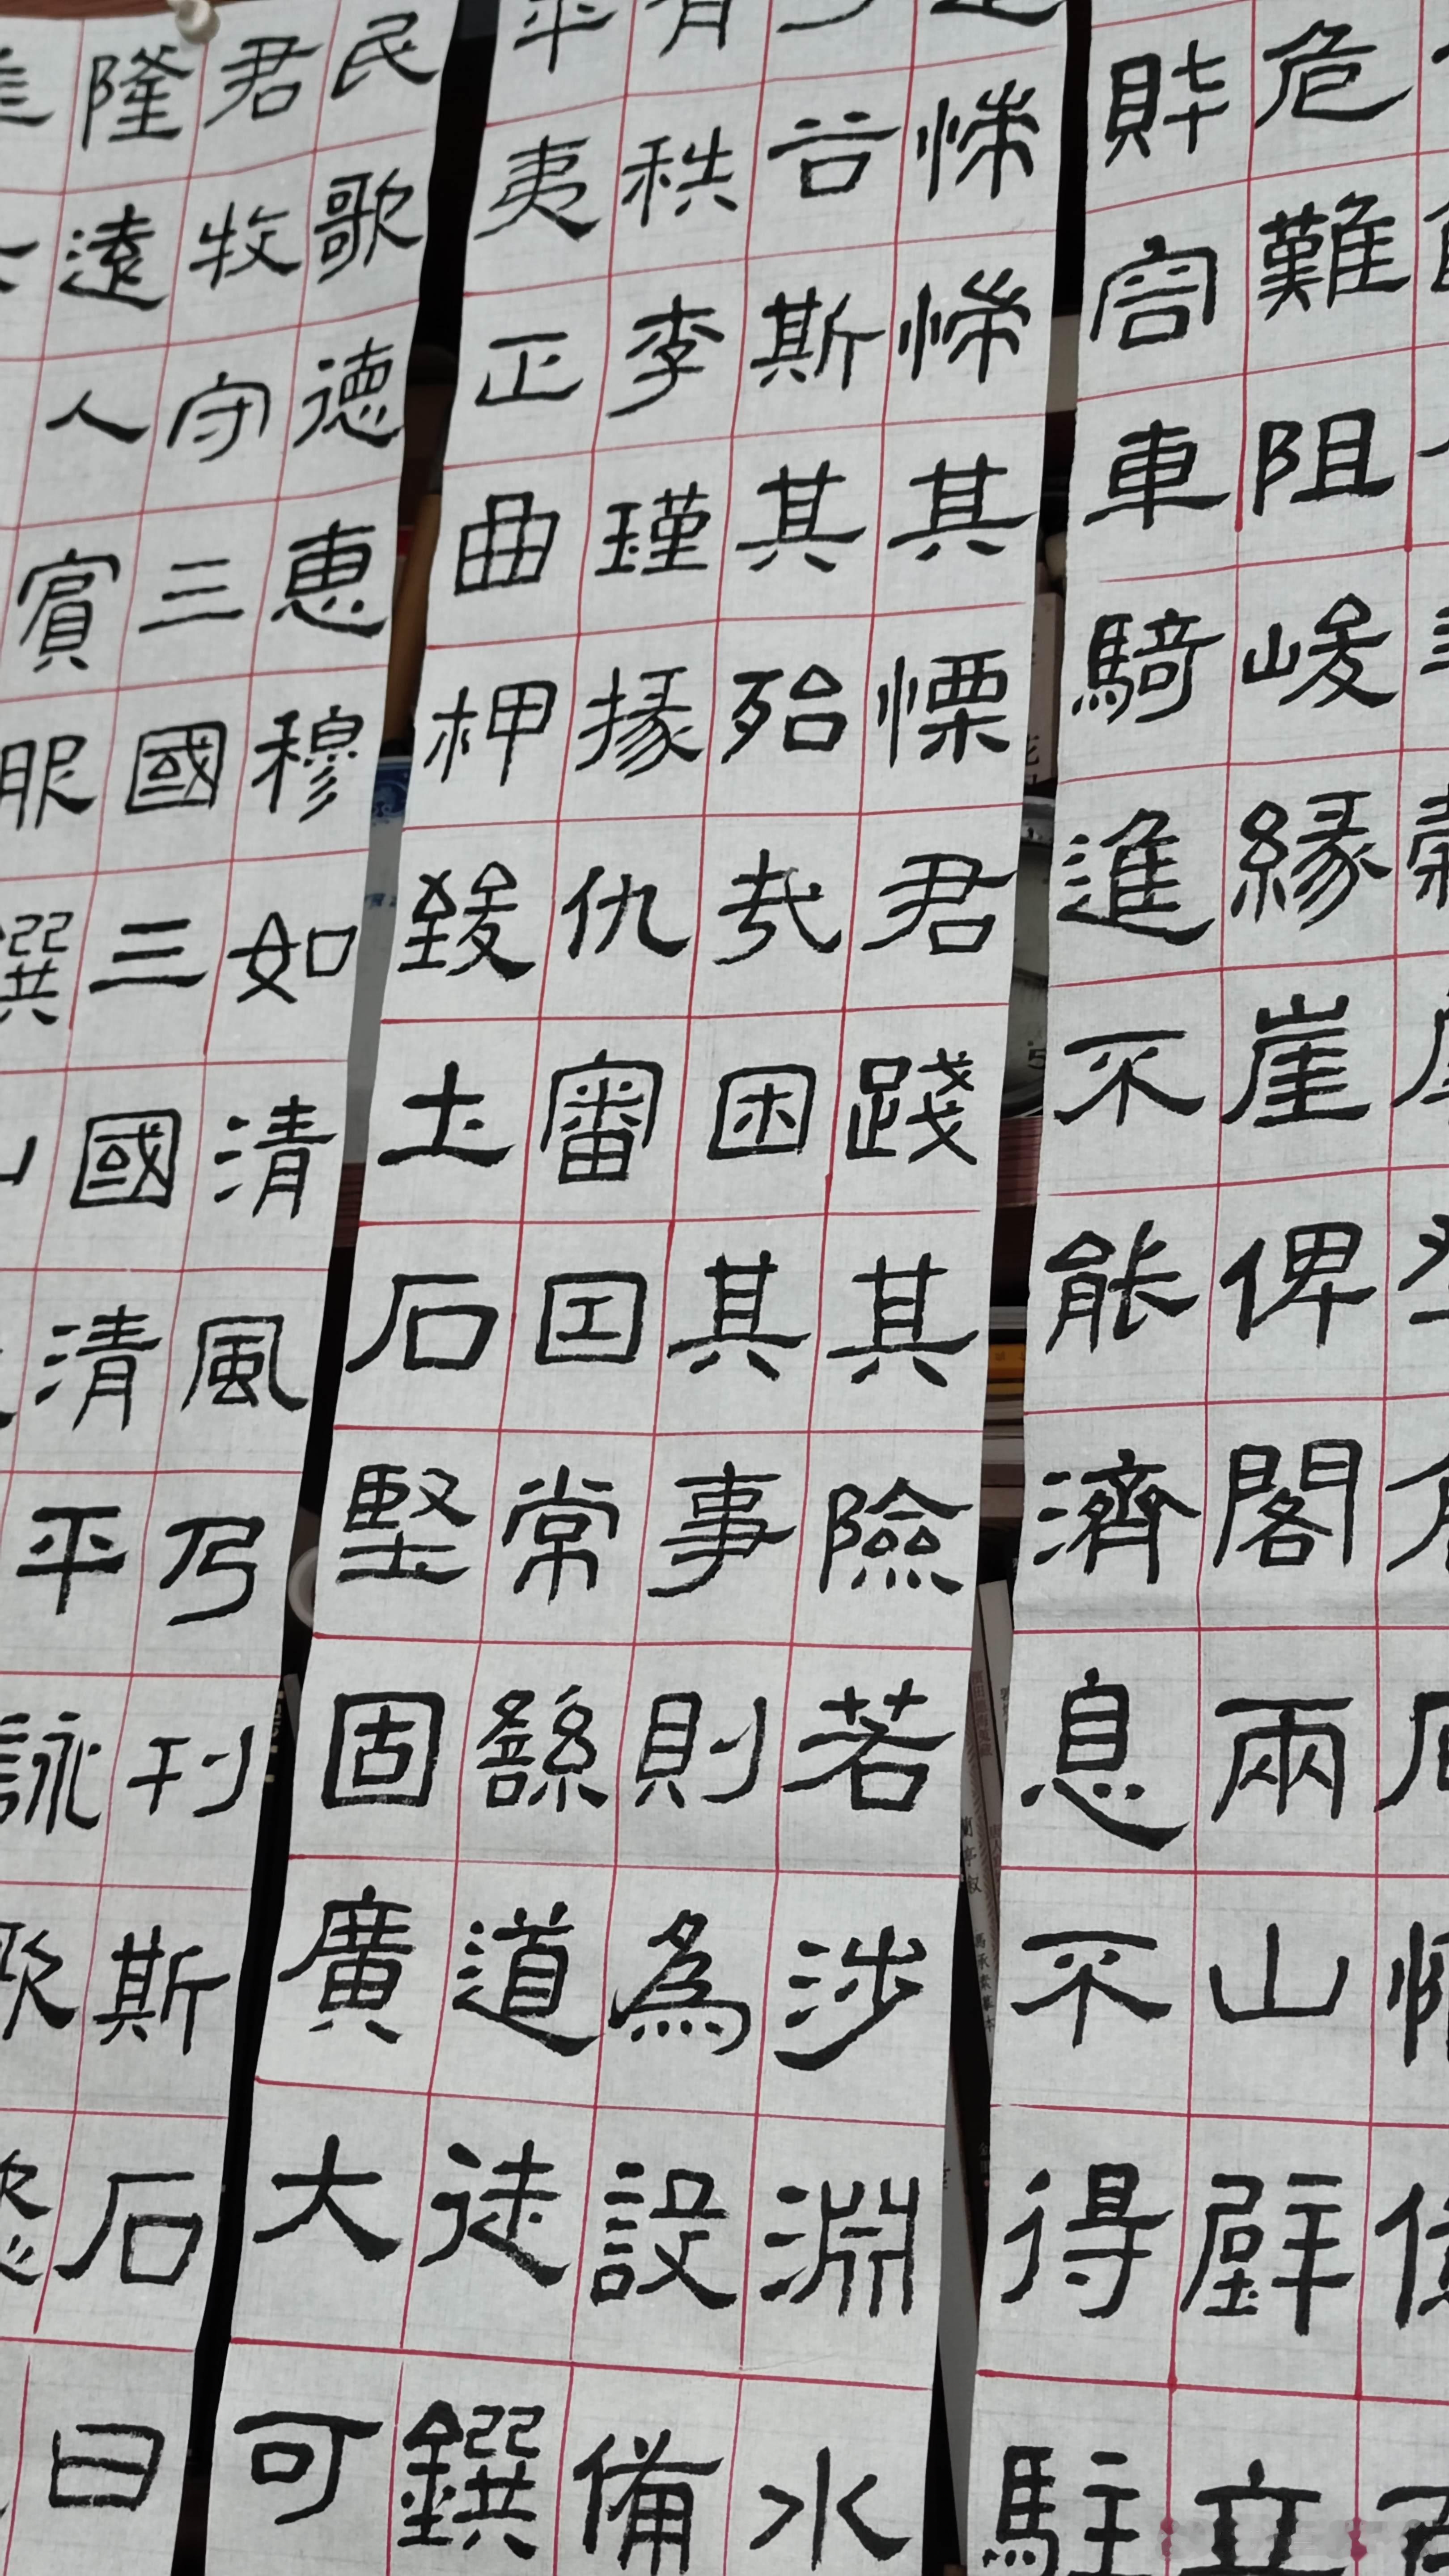 危難阻峻緣崖俾閣兩山壁立
財容車騎進不能濟息不得駐
惴惴其慄君踐其險若涉淵水
谷斯其殆哉困其事則為設備
有秩李瑾掾仇審因常繇道徒鐉
平夷正曲柙致土石堅固廣大可
民歌德惠穆如清風乃刊斯石曰
君牧守三國三國清平詠歌懿
隆遠人賓服鐉山